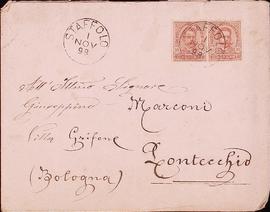 STAFFOLO
1
NOV
98
STAFFOLO
All'Illmo Signore
Giuseppino Marconi
Villa Grifone
Pontecchio
(Bologna)